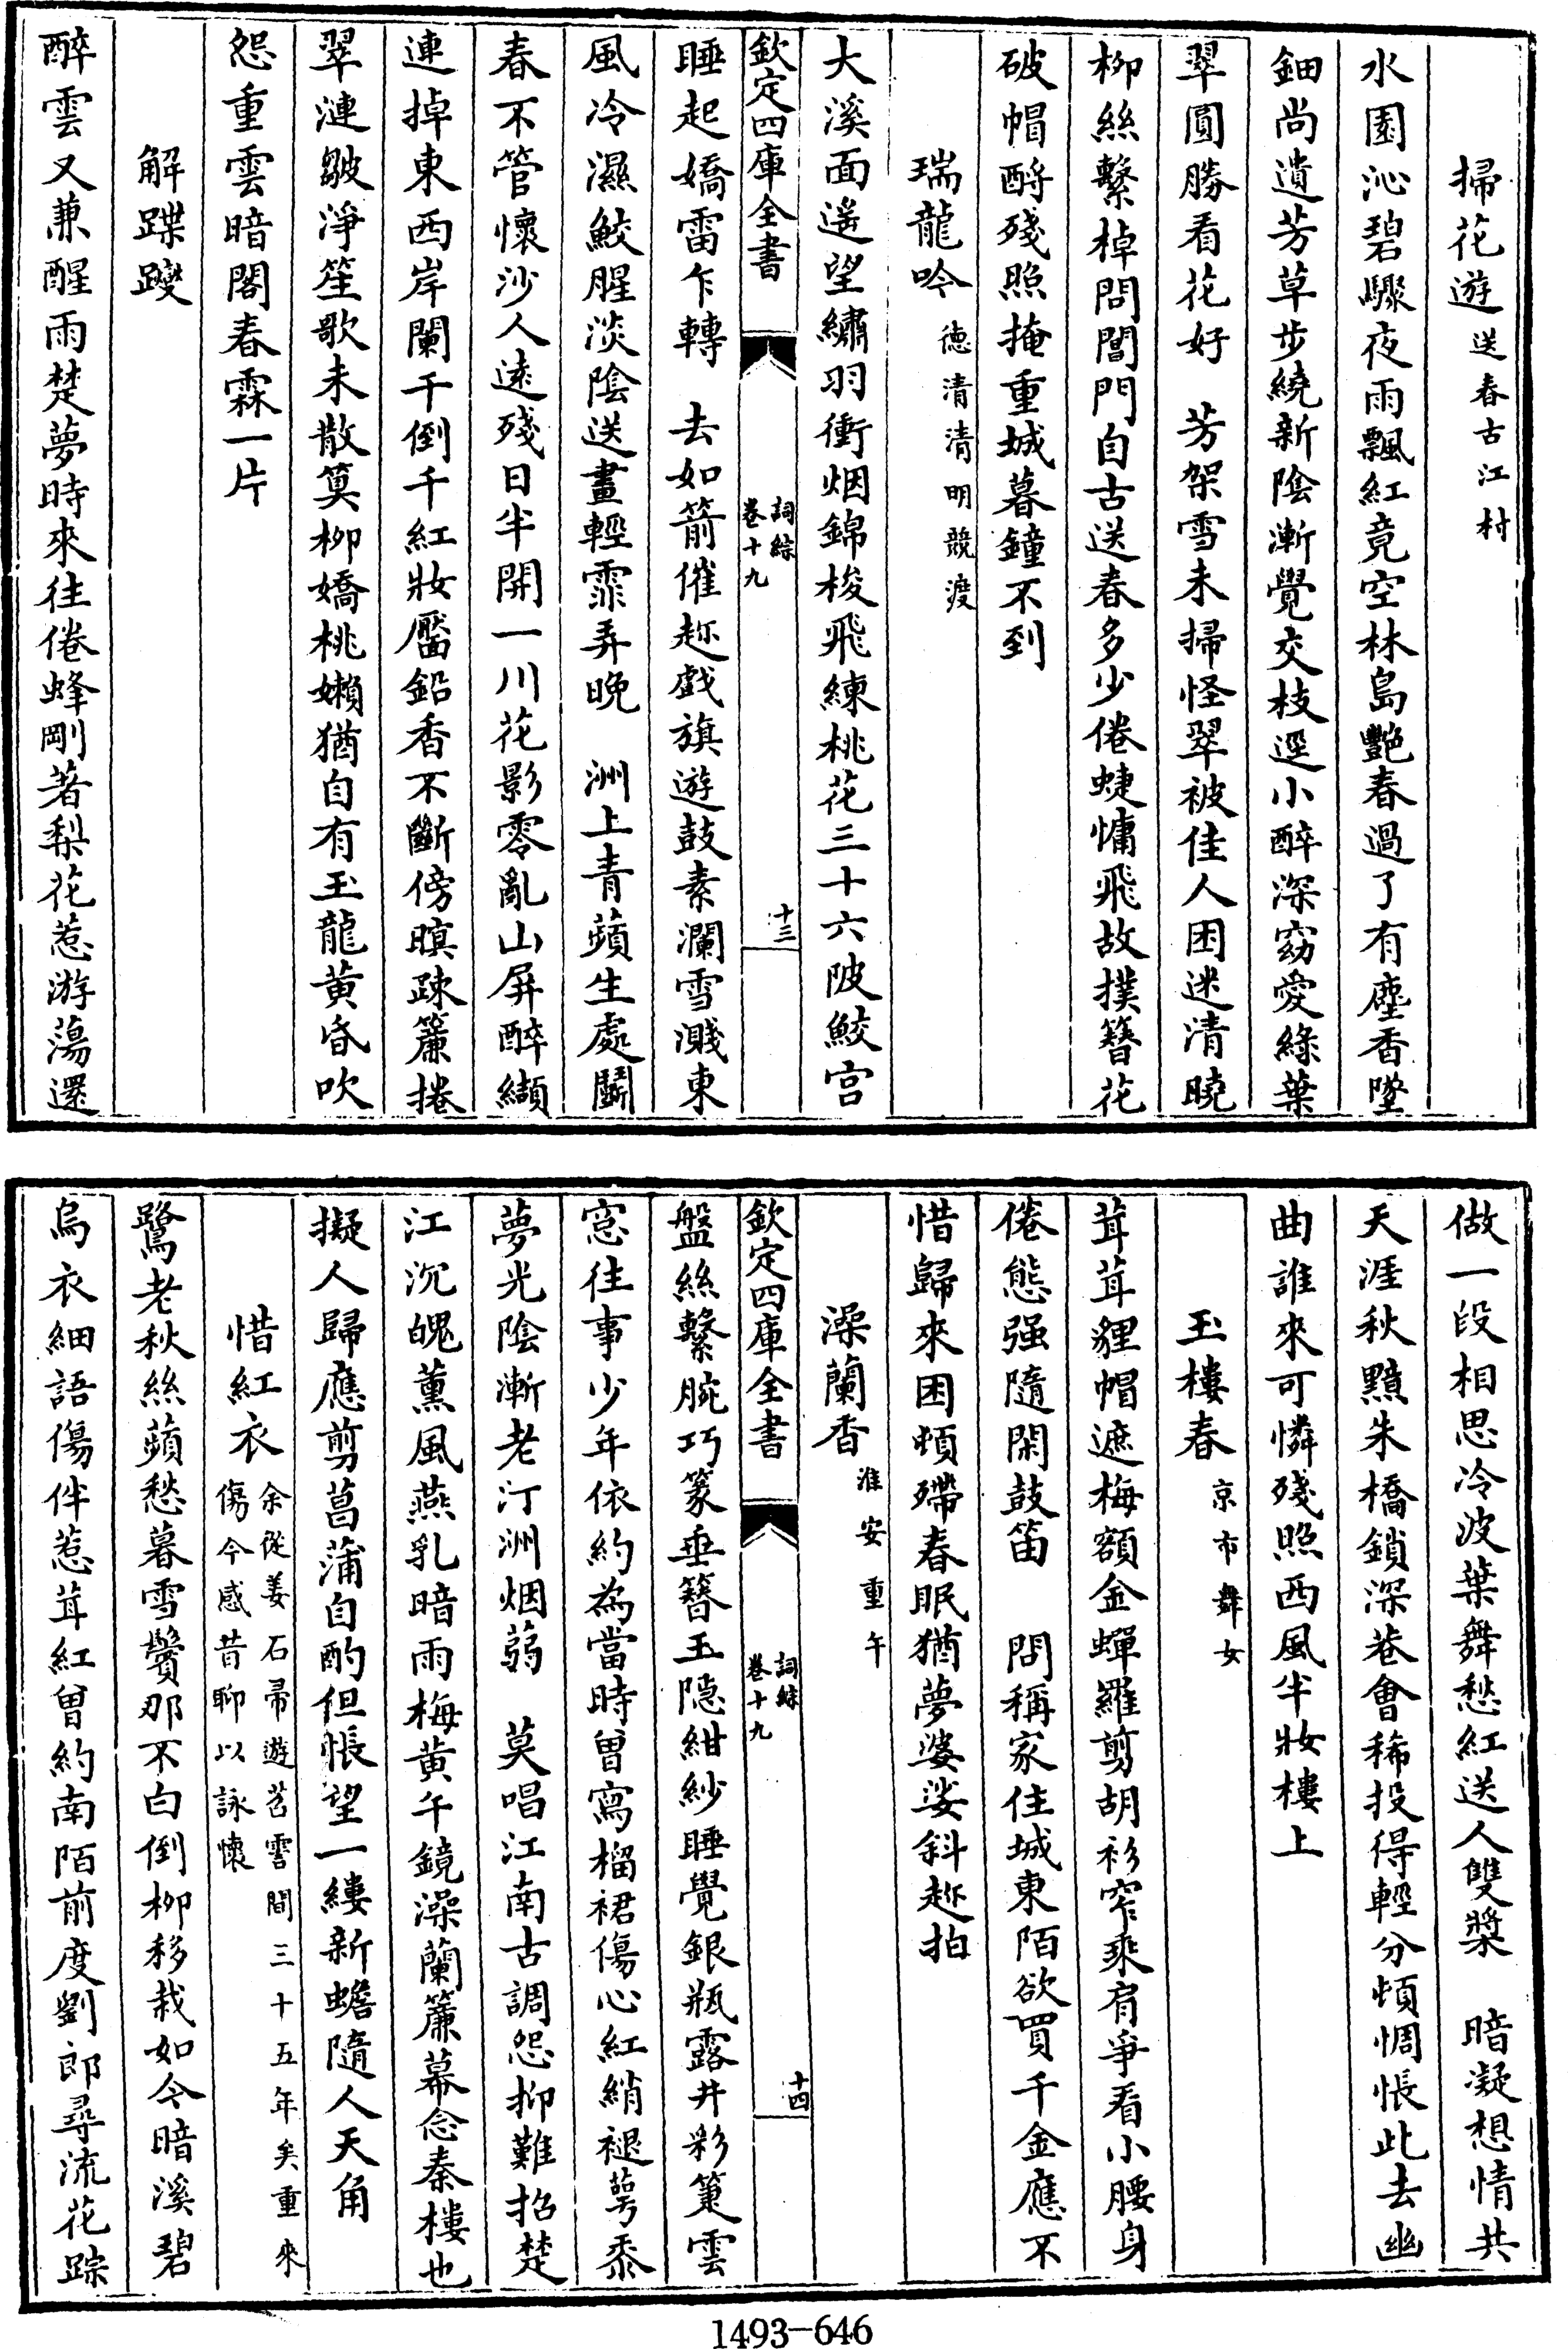 掃花遊送春古江村
水園沁碧驟夜雨飄紅竟空林島艷春過了有塵香墜
鈿尚遺芳草步繞新陰漸覺交枝逕小醉深窈愛綠葉
翠圓勝看花好　芳架雪未掃怪翠被佳人困迷清曉
柳絲繫棹問閶門自古送春多少倦蜨慵飛故撲簪花
破帽酹殘照掩重城暮鐘不到
瑞龍吟德清清明競渡
大溪面遙望繡羽衝烟錦梭飛練桃花三十六陂鮫宮
欽定四庫全書
詞綜
卷十九
十三
睡起嬌雷乍轉　去如箭催趂戲旗遊鼓素瀾雪濺東
風冷濕鮫腥淡陰送晝輕霏弄晚　洲上青蘋生處鬬
春不管懷沙人遠殘日半開一川花影零亂山屏醉纈
連掉東西岸闌干倒千紅妝靨鉛香不斷傍暝疎簾捲
翠漣皺淨笙歌未散簨柳嬌桃嬾猶自有玉龍黃昏吹
怨重雲暗閣春霖一片
解蹀躞
醉雲又兼醒雨楚夢時來往倦蜂剛著梨花惹游蕩還
做一段相思冷波葉舞愁紅送人雙槳　暗凝想情共
天涯秋黯朱橋鎖深巷會稀投得輕分頓惆悵此去幽
曲誰來可憐殘照西風半妝樓上
玉樓春京市舞女
茸茸貍帽遮梅額金蟬羅剪胡衫窄乘肩爭看小腰身
倦態强隨閑鼓笛　問稱家住城東陌欲買千金應不
惜歸來困頓殢春眠猶夢婆娑斜趂拍
澡蘭香淮安重午
欽定四庫全書
詞綜
卷十九
十四
盤絲繫腕巧篆垂簪玉隱紺紗睡覺銀瓶露井彩箑雲
窓往事少年依約為當時曾寫榴裙傷心紅綃褪萼黍
夢光陰漸老汀洲烟蒻　莫唱江南古調怨抑難招楚
江沉魄薰風燕乳暗雨梅黃午鏡澡蘭簾幕念秦樓也
擬人歸應剪菖蒲自酌但悵望一縷新蟾隨人天角
惜紅衣余從姜石帚遊苕霅間三十五年矣重來
傷今感昔聊以詠懷
鷺老秋絲蘋愁暮雪鬢那不白倒柳移栽如今暗溪碧
烏衣細語傷伴惹茸紅曾約南陌前度劉郎尋流花踪
1493-646